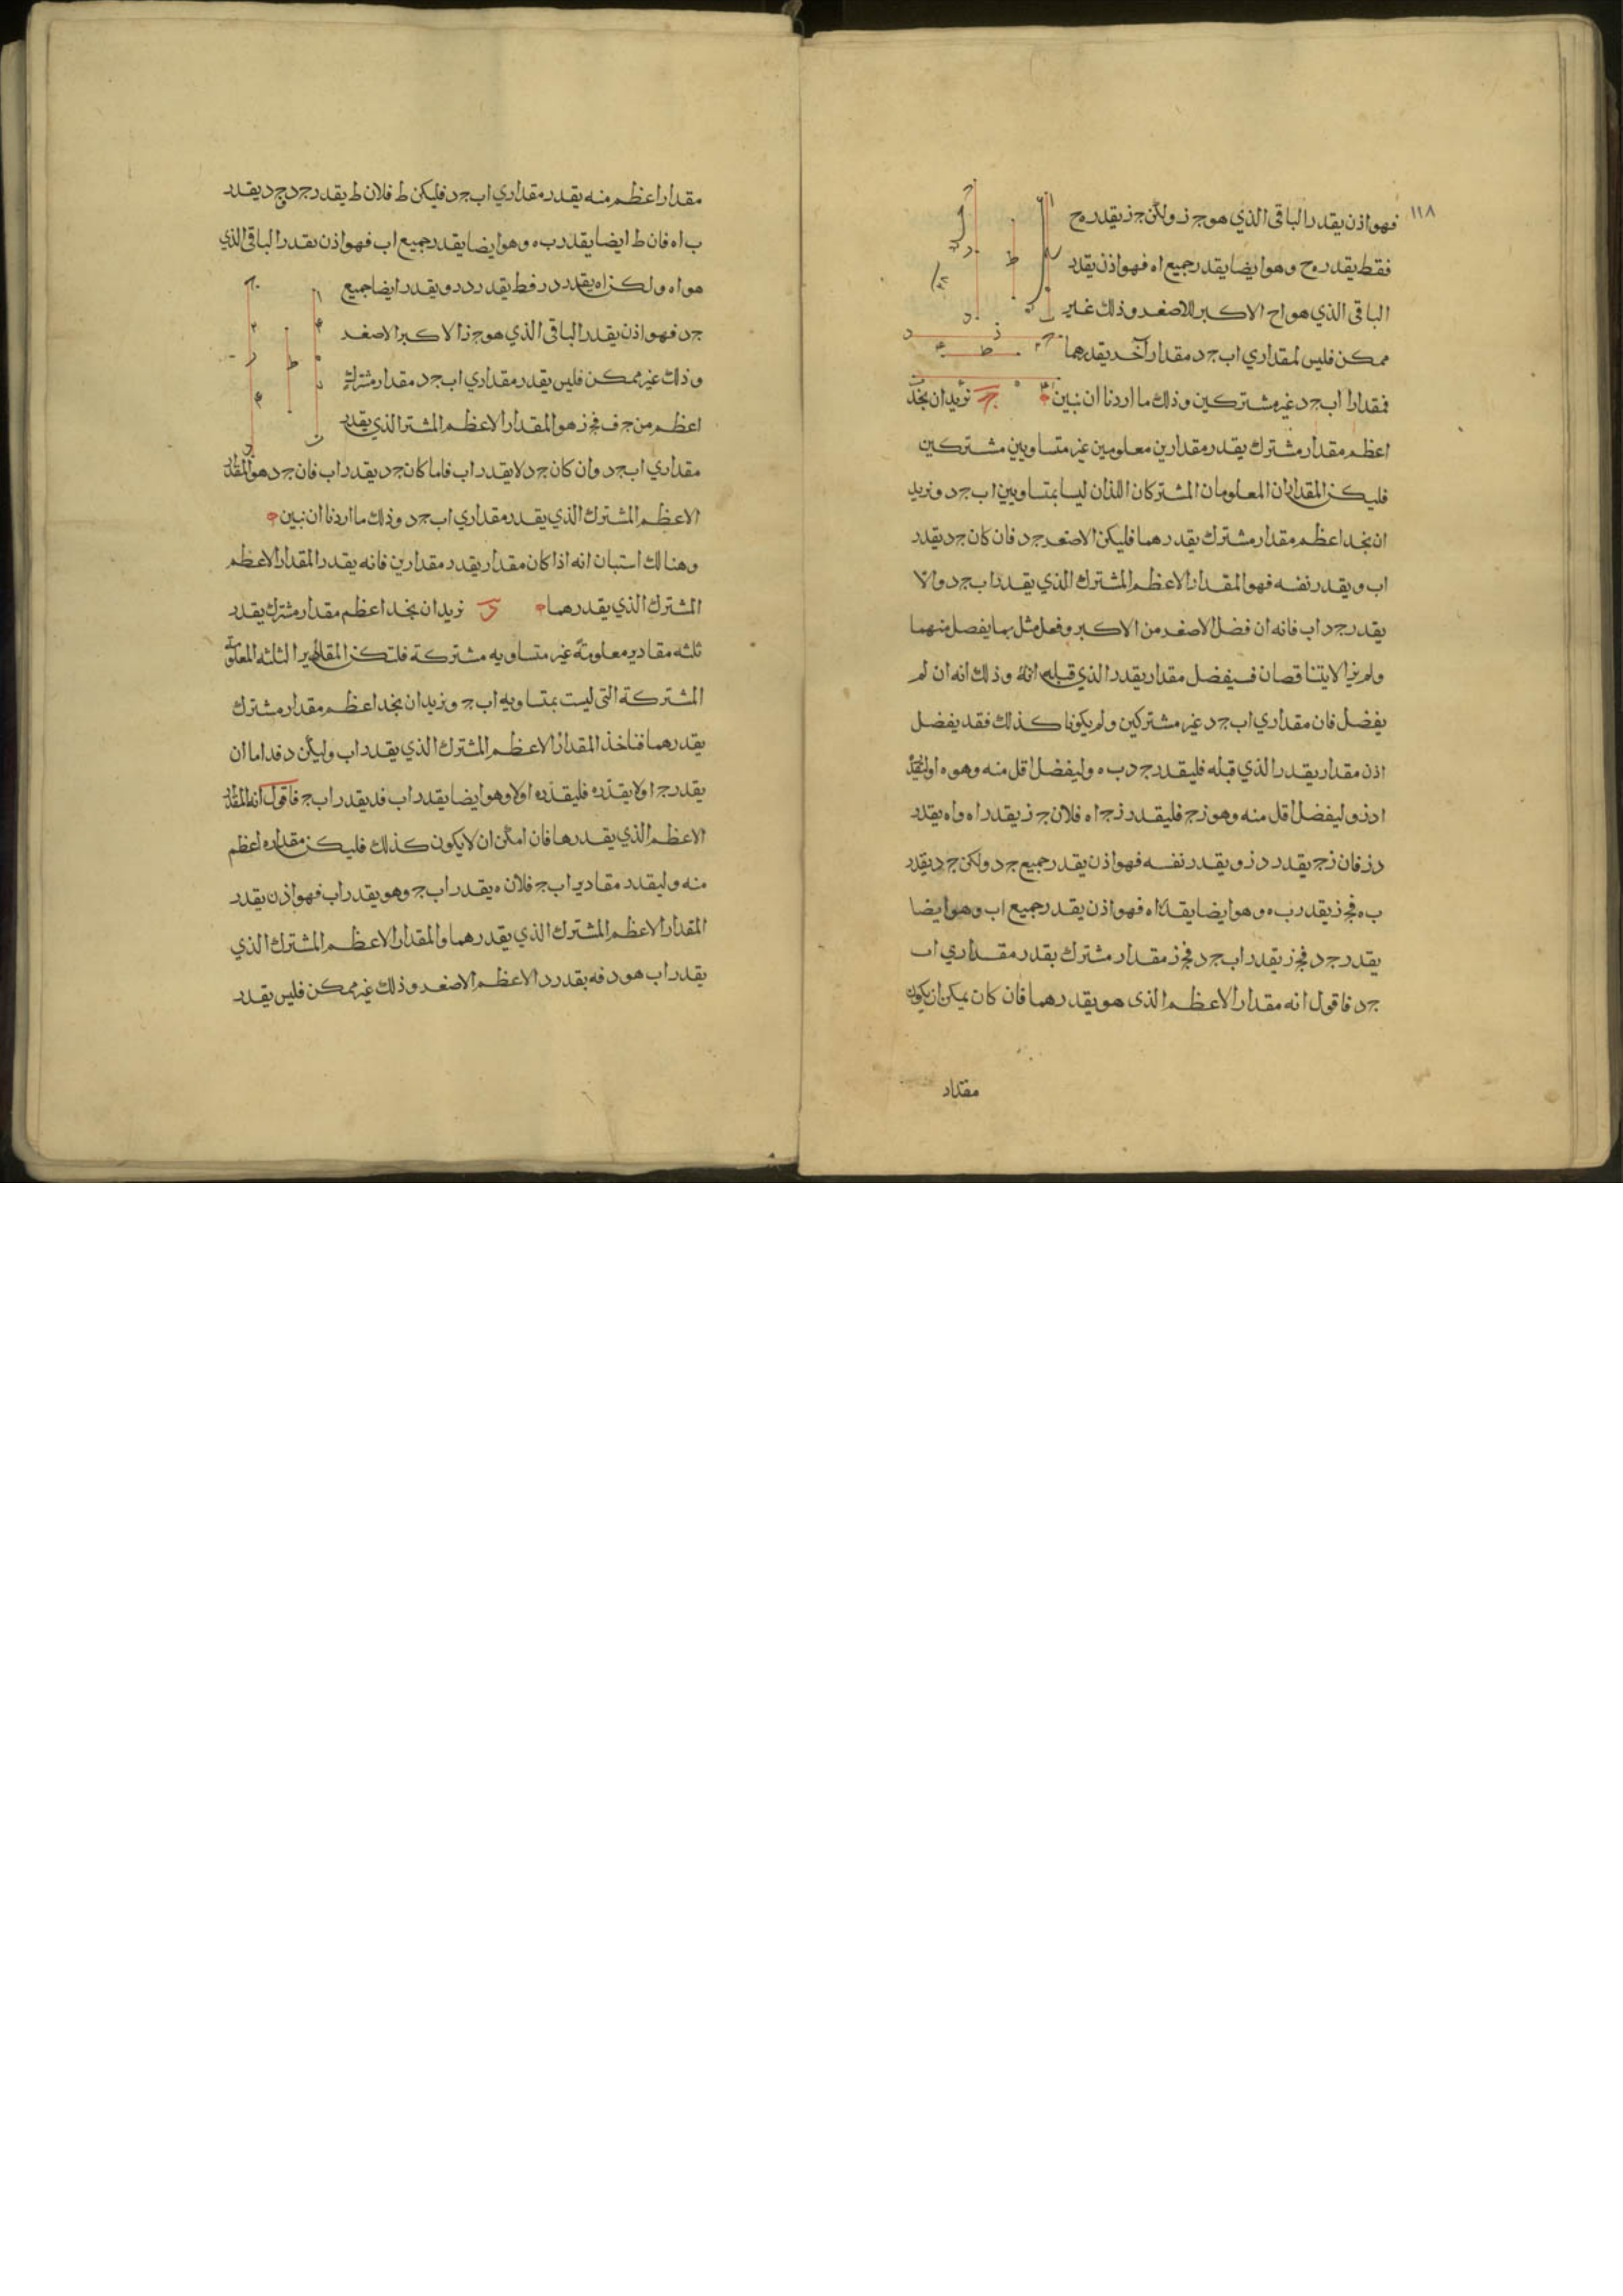 ١١٨
فهو اذن يقدر الباقى الذي هو جز ولكن جز يقدر ەح
فقط يقدر ەح وهو ايضا يقدر جميع اه فهو اذن يقدر
الباقى الذي هو اح الاكبر للاصغر وذلك غير
ممكن فليس لمقداري اب جد مقدار آخر يقدرهما
فمقدارا اب جد غير مشتركين وذلك ما اردنا ان نبين ج نريد ان نجد
اعظم مقدار مشترك يقدر مقدارين معلومين غير متساويين مشتركين
فليكن المقداران المعلومان المشتركان اللذان ليسا بمتساويين اب جد ونريد
ان نجد اعظم مقدار مشترك يقدرهما فليكن الاصغر جد فان كان جد يقدر
اب ويقدر نفسه فهو المقدار الاعظم المشترك الذي يقدر اب جد والا
يقدر جد اب فانه ان فضل الاصغر من الاكبر وفعل مثل بما يفصل منهما
ولم يزالا يتناقصان فسيفضل مقدار يقدر الذي قبله وذلك انه ان لم
يفضل فان مقداري اب جد غير مشتركين ولم يكونا كذلك فقد يفضل
اذن مقدار يقدر الذي قبله فليقدر جد به وليفضل اقل منه وهو ەا وليقدر
اە دز وليفضل اقل منه وهو زج فليقدر زج اه فلان جز يقدر اه واه يقدر
دز فان زج يقدر دز ويقدر نفسه فهو اذن يقدر جميع جد ولكن جد يقدر
به فجز يقدر به وهو ايضا يقدر اه فهو اذن يقدر جميع اب وهو ايضا
يقدر جد فجز يقدر اب جد فجز مقدار مشترك يقدر مقداري اب
جد فاقول انه مقدار الاعظم الذى هو يقدرهما فان كان يمكن ان يكون
مقدار
مقدارا اعظم منه يقدر مقداري اب جد فليكن ط فلان ط يقدر جد وجد يقدر
ب اه فان ط ايضا يقدر به وهو ايضا يقدر جميع اب فهو اذن يقدر الباقى الذي
هو اه ولكن اه يقدر در فط يقدر در ويقدر ايضا جميع
جد فهو اذن يقدر الباقى الذي هو جز الاكبر الاصغر
وذلك غير ممكن فليس يقدر مقداري اب جد مقدار مشترك
اعظم من جف فجز هو المقدار الاعظم المشتر الذي يقدر
مقداري اب جد وان كان جد لا يقدر اب فاما كان جد يقدر اب فان جد هو المقدار
الاعظم المشترك الذي يقدر مقداري اب جد وذلك ما اردنا ان نبين
وهنالك استبان انه اذا كان مقدار يقدر مقدارين فانه يقدر المقدار الاعظم
المشترك الذي يقدرهما د نريد ان نجد اعظم مقدار مشترك يقدر
ثلثه مقادير معلومة غير متساويه مشتركة فلتكن المقادير الثلثه المعلومة
المشتركة التى ليست بمتساويه اب ج ونريد ان نجد اعظم مقدار مشترك
يقدرهما فناخذ المقدار الاعظم المشترك الذي يقدر اب وليكن د فد اما ان
يقدر ج او لا يقدره فليقدره اولا وهو ايضا يقدر اب فد يقدر اب ج فاقول انه المقدار
الاعظم الذي يقدرها فان امكن ان لا يكون كذلك فليكن مقدار ه اعظم
منه وليقدر مقادير اب ج فلان ه يقدر اب ج وهو يقدر اب فهو اذن يقدر
المقدار الاعظم المشترك الذي يقدرهما والمقدار الاعظم المشترك الذي
يقدر اب هو د فه يقدر د الاعظم الاصغر وذلك غير ممكن فليس يقدر